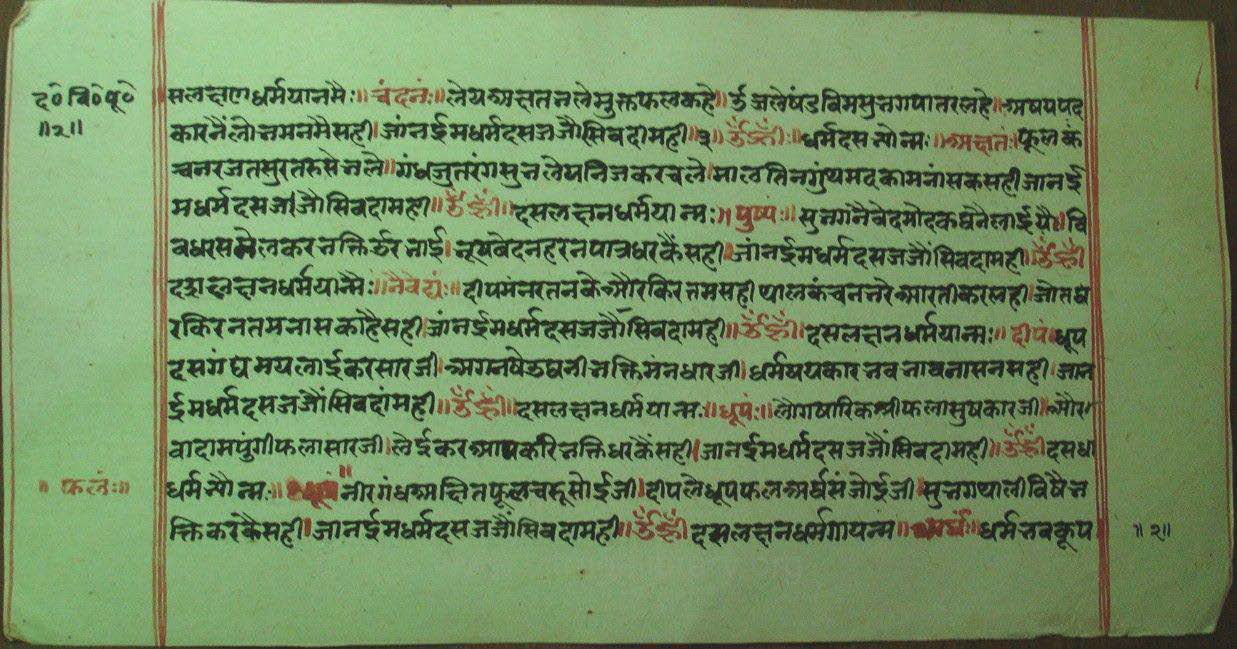 द॰ वि॰ पू॰
॥२॥
सलक्षणधर्मयानमैः॥ चंदनंः॥ लेयअक्षतनलेमुक्तफलकहे॥ अषयपद
कारनैंलोनमनमैसही। जांनईमधर्मदसजजौसिवदामही॥३॥ उँह्रीः॥ धर्मदस न्मः॥ अक्षतं॥ फूलकं
चनरजतसुरतरुसेनले॥ गंधजुतरंगसुनलेयनिजकरचले। मालतिनगुंथमदकामनांसकसही जानई
मधर्मदसजजौसिवदामही॥ उँह्रीं॥ दसलक्षनधर्मयान्मः॥ पुष्पंः॥ सुनगनैवेदमोदकघनैलाईयै॥ वि
करनक्तिउरनाई। नूषवेदनहरनपात्रधरकैंसही। जांनईमधर्मदसजजौंसिवदामही॥ उँह्रीं
लक्षनधर्मयान्मैः॥ नैवेद्यंः॥ दीपमंनरतनकेऔरकिरतमसही थालकंचननरेआरतीकरलही। जोतध
रकिरनतमनासकाहैसही। जांनईमधर्मदसजजौंसिवदामही॥ उँह्रीं॥ दसलक्षनधर्मयान्मः॥ दीपं॥ धूप
दसगंधमयलाईकरसारजी। अगनषेऊघनीनक्तिमंनधारजी। धर्म नवनावनासनसही। जान
ईमधर्मदसजजौंसिवदांमही॥ उँह्रीं॥ दसलक्षनधर्मयान्मः॥ धूपंः॥ लौगषारिकश्रीफलासुषकारजी। और
वादामपुंगीफलासारजी। लैईकरआपकरिनक्तिधरकैंसही। जानईमधर्मदसजजौंसिवदामही॥ उँह्रीं॥ दसधा
॥ फलंः॥
धर्म न्मः॥ नीरगंधअक्षितफूलचरूसोईजी। दीपलेधूपफलअर्घसंजोईजी। सुनगथालीविषैन
क्तिकरकैसही। जानईमधर्मदसजजौंसिवदामही॥ उँह्रीं॥ दसलक्षनधर्मगायन्मं॥ अर्घंः॥ धर्मनवकूप
॥२॥